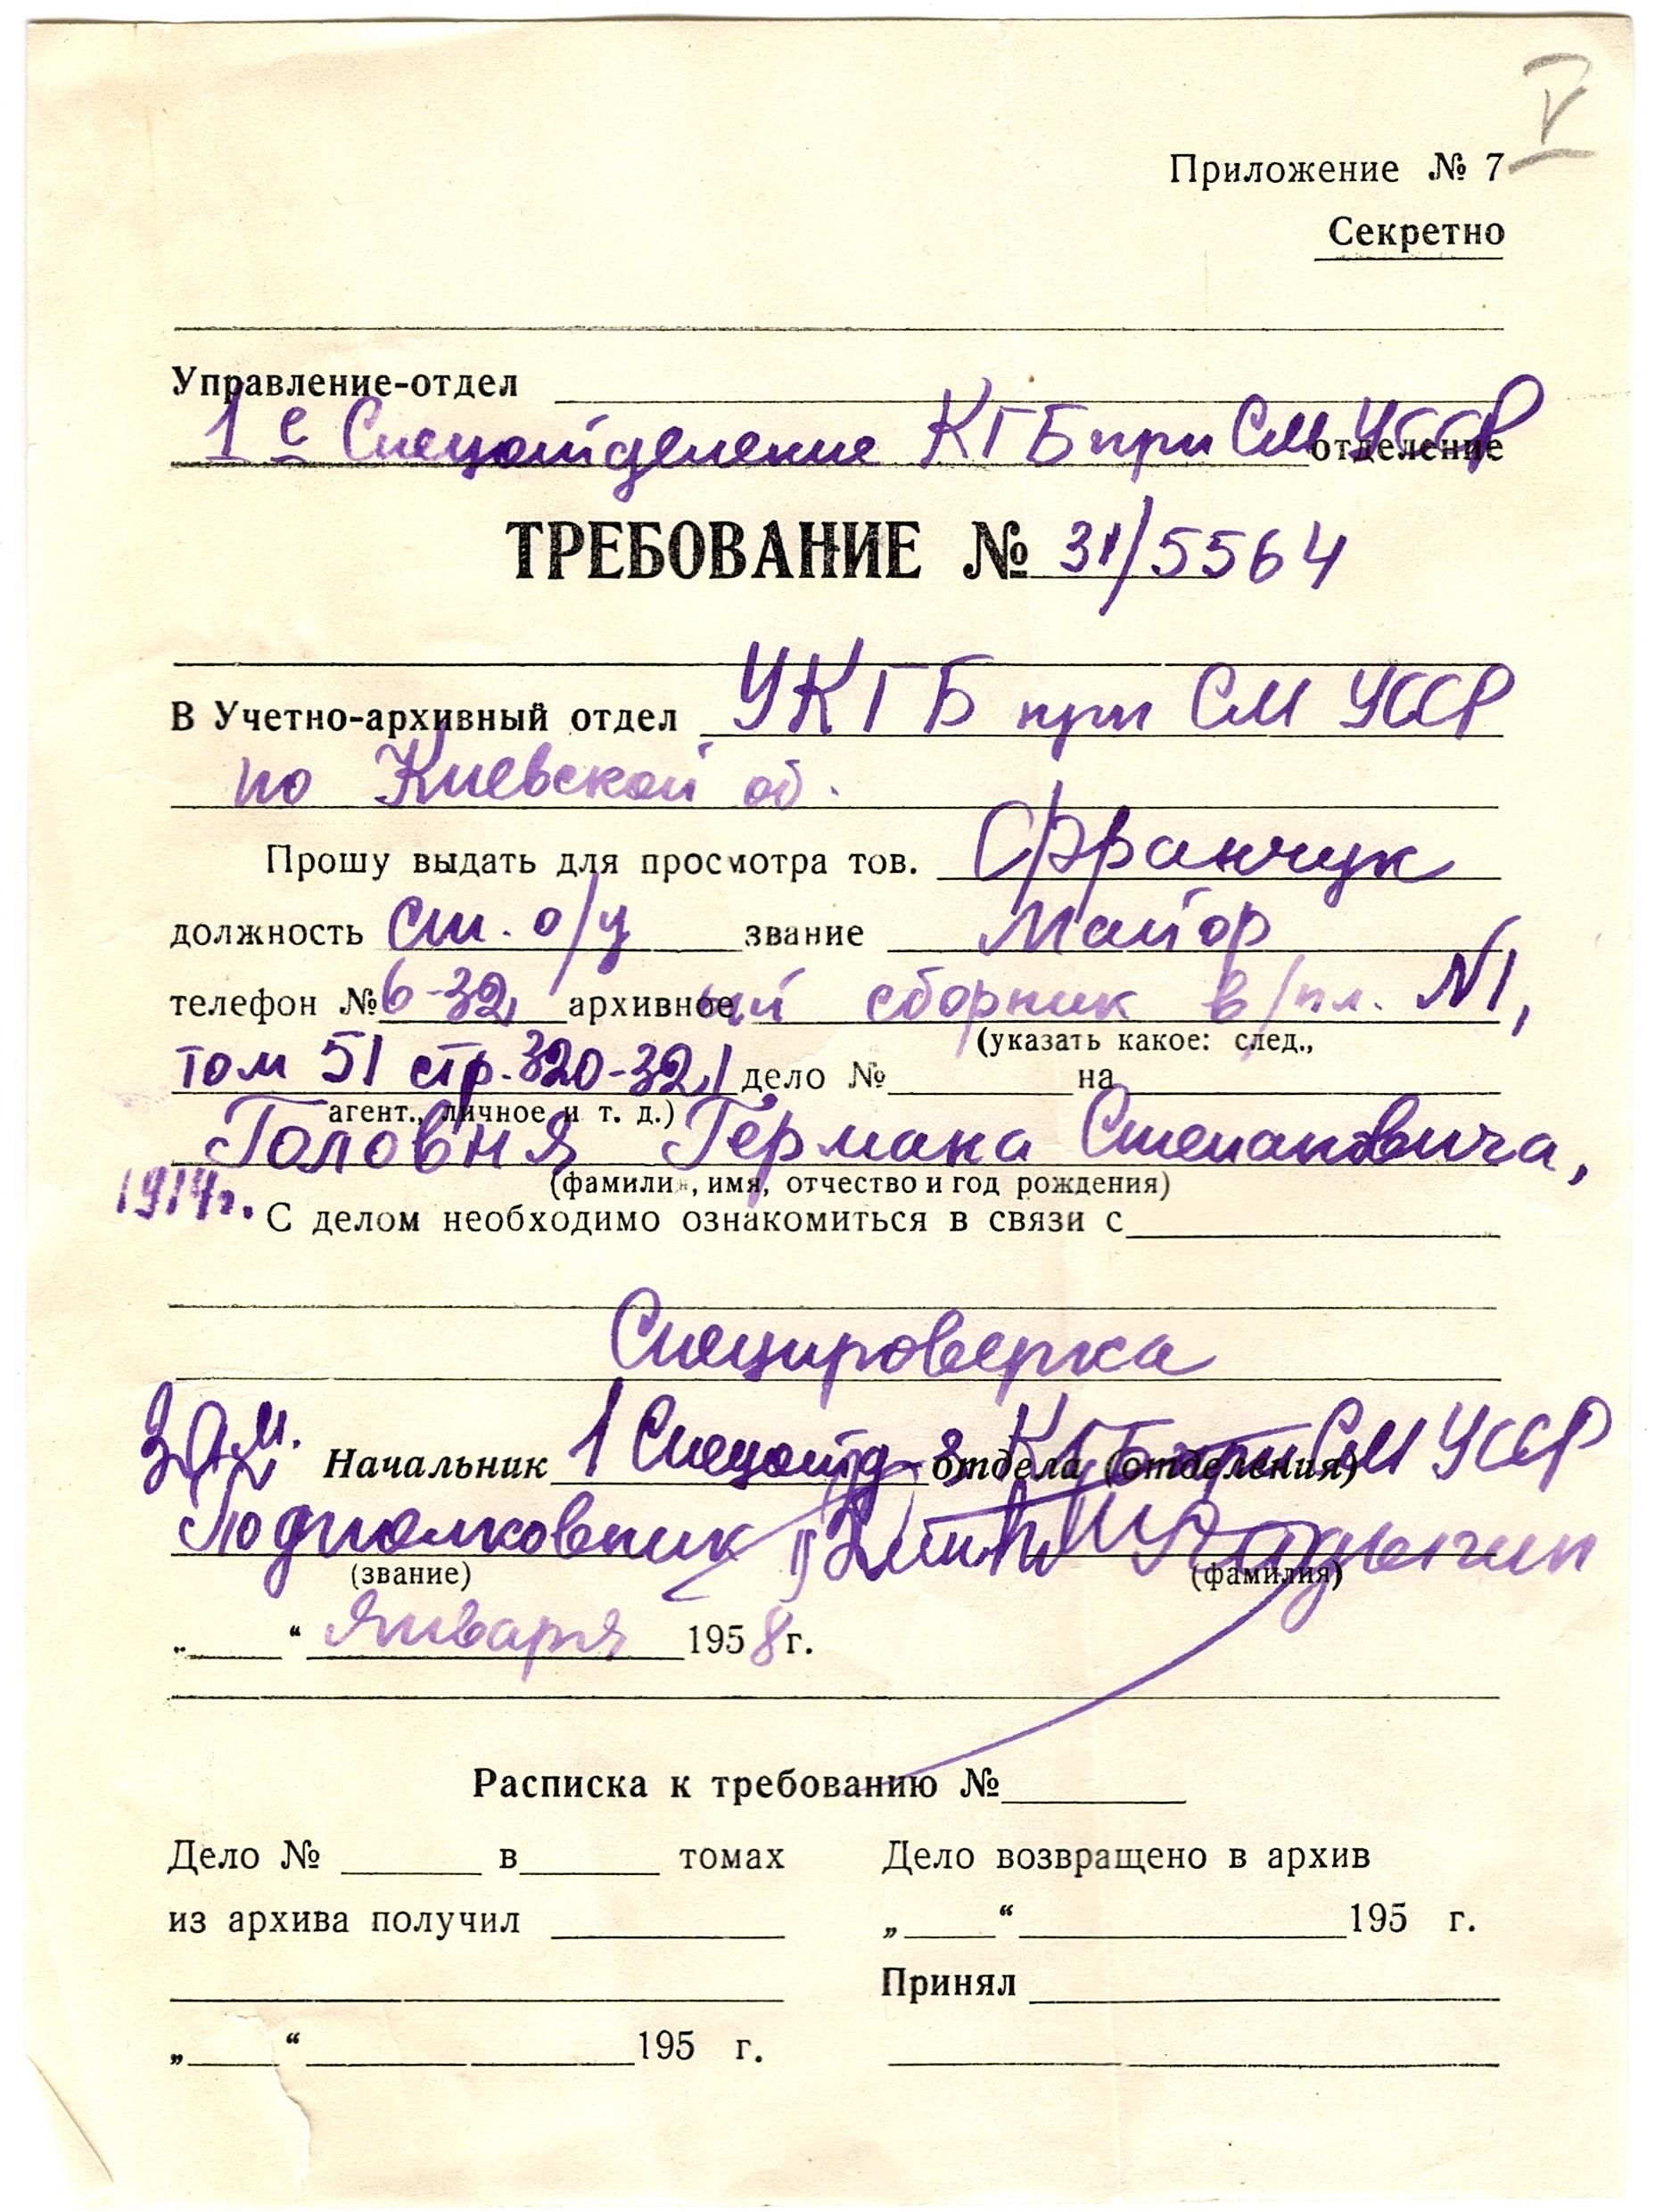 V
Приложение № 7
Секретно
Управление-отдел
1е Спецотделение КГБ при СМ УССР отделение
ТРЕБОВАНИЕ № 31/5564
УКГБ при СМ УССР
В Учетно-архивный отдел
по Киевской об.
Прошу выдать для просмотра тов. Франчук
должность ст. о/у звание Майор
телефон № 6-32 архивное ый сборник в/пл. N1,
(указать какое: след.,
том 51 стр. 320-321 дело № на
агент., личное и т. д.)
Головня Германа Степановича,
(фамилия, имя, отчество и год рождения)
1914г. С делом необходимо ознакомиться в связи с
Спецпроверка
Зам. Начальник 1 Спецотд- отдела (отделения) КГБ при СМ УССР
Подполковник
(звание) (фамилия)
„ “ Января 1958г.
Расписка к требованию №
Дело № в томах
из архива получил
„ “ 195 г.
Дело возвращено в архив
„ “ 195 г.
Принял